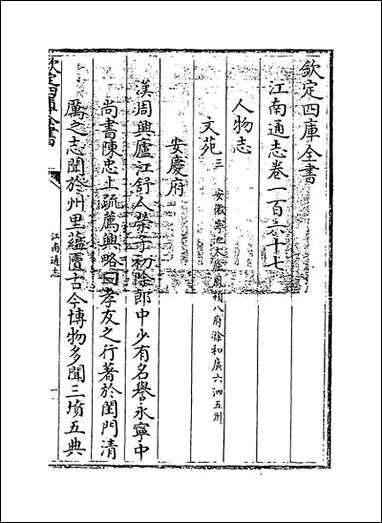 欽定四庫全書
江南通志卷一百六十七
人物志
文苑三 安徽寧池太廬鳳潁八府滁和廣六泗五州
安慶府
漢周興廬江舒人榮子初除郎中少有名譽永寧中
尚書陳忠上疏薦興略曰孝友之行著於閨門清
厲之志聞於州里蘊匱古今博物多聞三墳五典
欽定四庫全書
江南通志
一